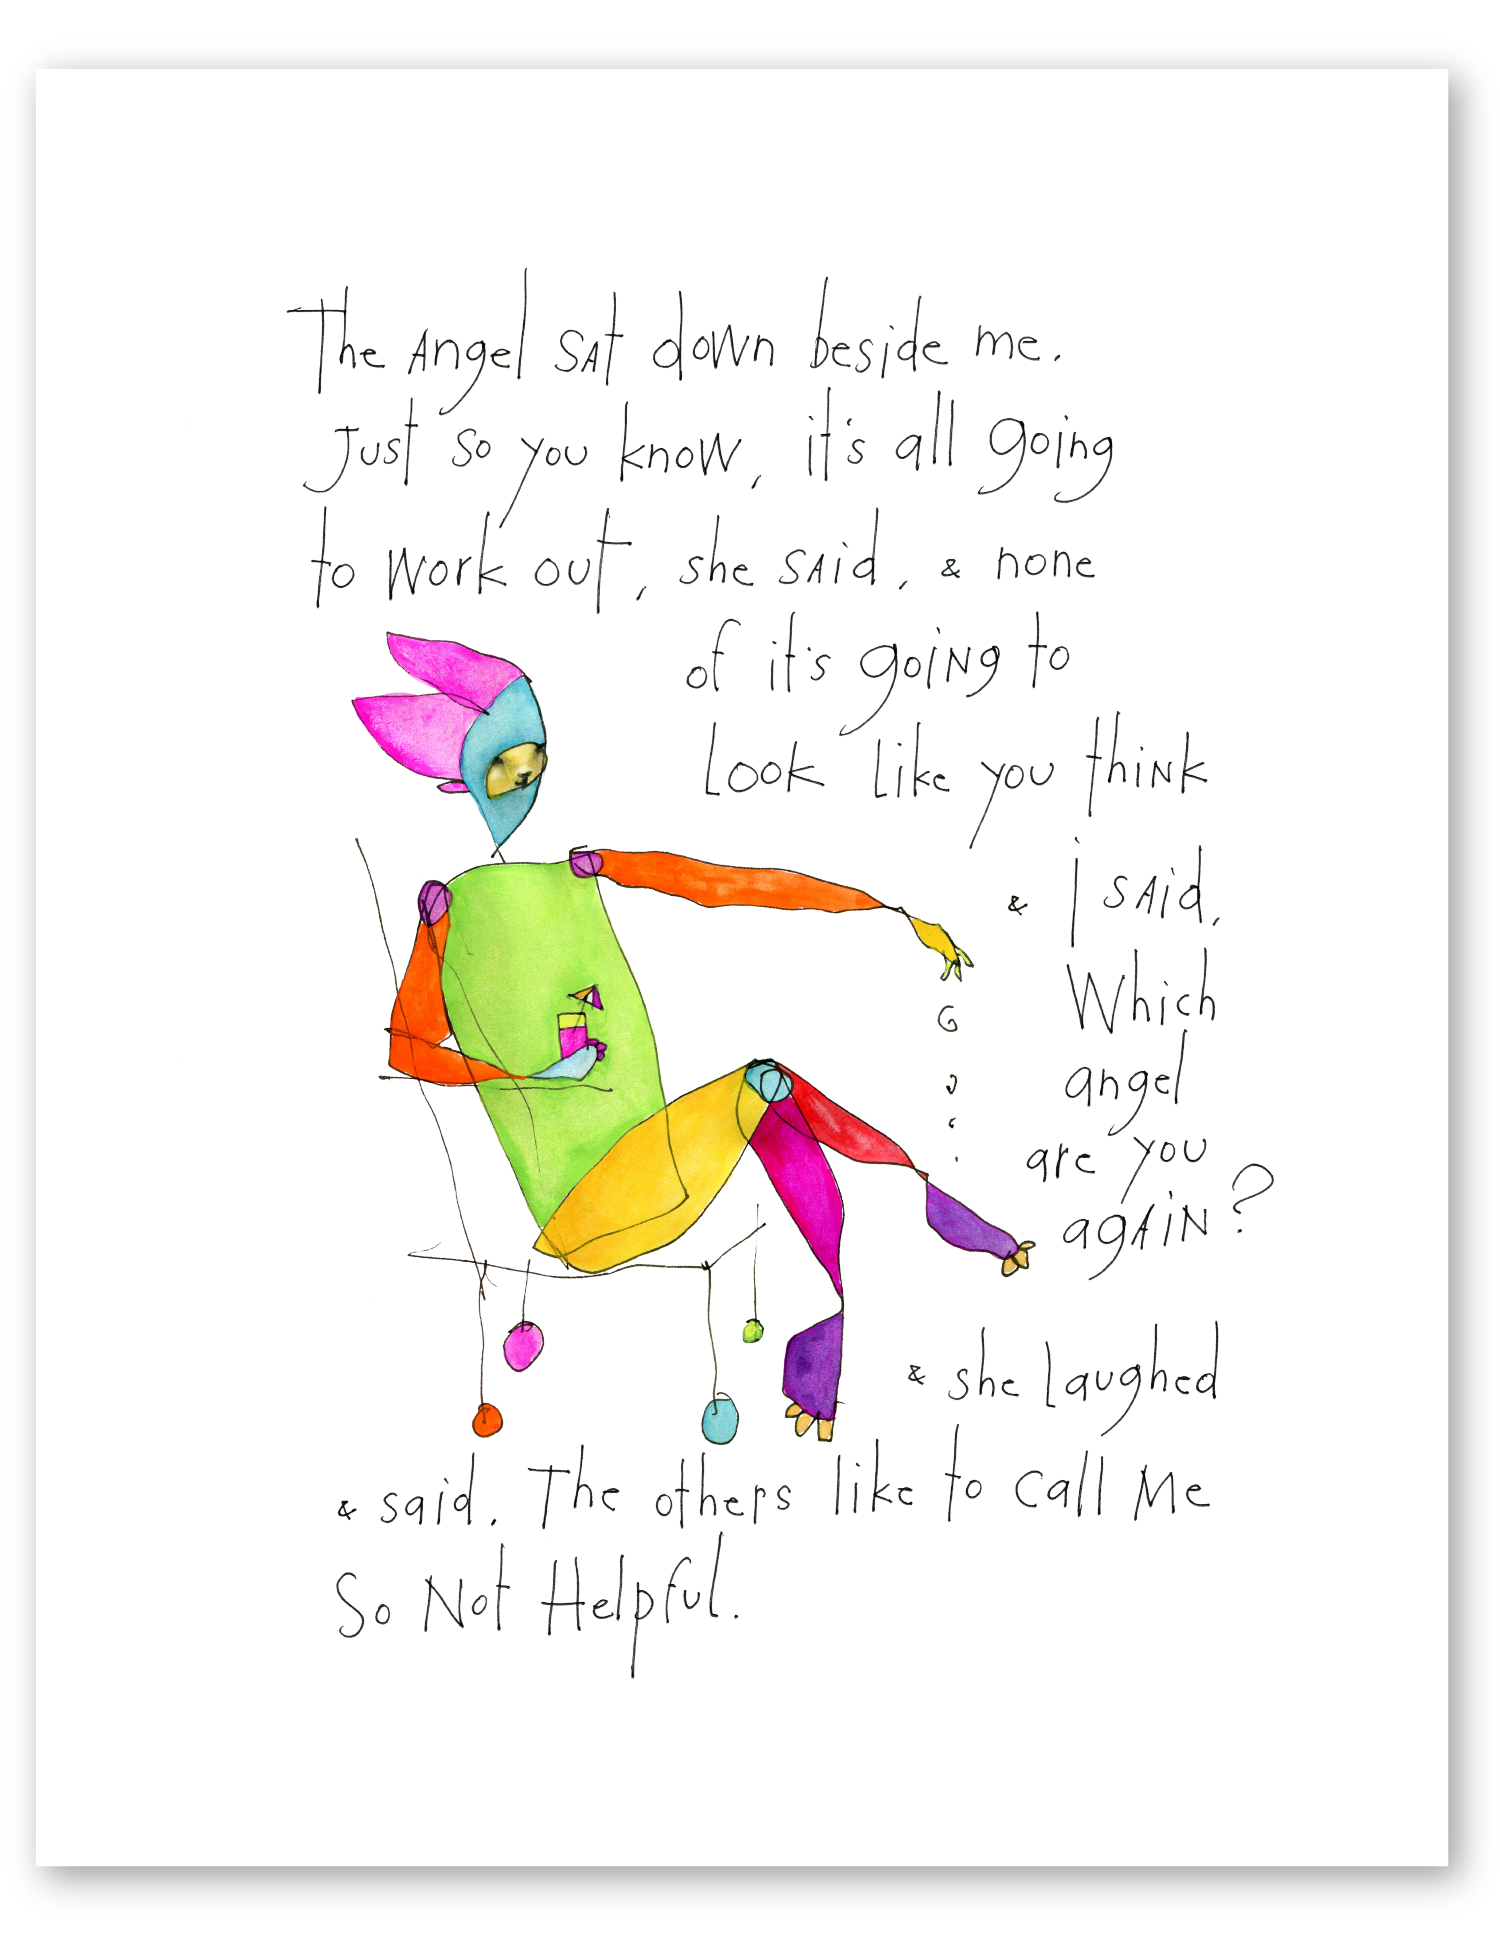 The Angel sat down beside me.
Just so you know, it's all going
to work out, she said, & none
of it's going to
look like you think
& I said,
Which
angel
are you
again?
& she laughed
& said, The others like to call Me
So Not Helpful.